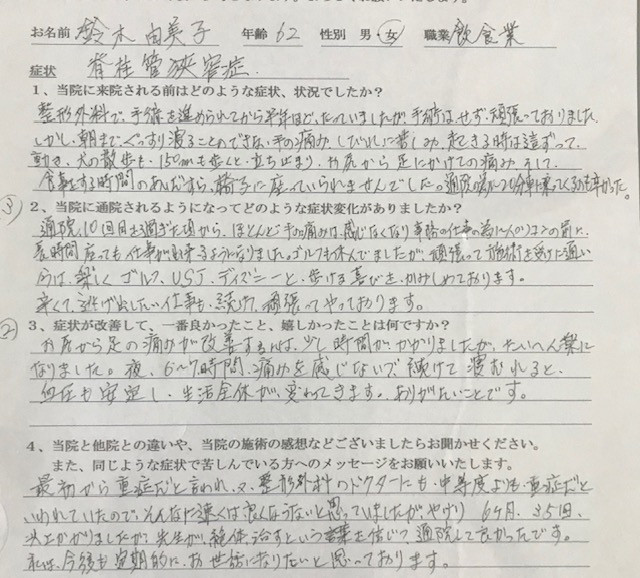 お名前 鈴木由美子 年齢 62 性別 男・女 職業 飲食業
症状 脊柱管狭窄症.
1、当院に来院される前はどのような症状、状況でしたか？
整形外科で、手術を進められてから半年ほど、たっていましたが手術は、せず、頑張っておりました。
しかし、朝まで、ぐっすり寝ることのできない手の痛み、しびれに苦しみ、起きる時は這ずって、
動き、犬の散歩も、150mも歩くと、立ち止まり、お尻から足にかけての痛み、そして、
食事をする時間のあいだすら、椅子に座っていられませんでした。通院の為の20分車に乗ってくるのも辛かった。
③
2、当院に通院されるようになってどのような症状変化がありましたか？
通院、10回目を過ぎた頃から、ほとんど手の痛みは、感じなくなり事務の仕事の為に
長時間座っても仕事が出来るようになりました。ゴルフも休んでましたが、頑張って施術を受けに通い
今は、楽しくゴルフ、USJ、ディズニーと、歩ける喜びを、かみしめております。
辛くて、逃げ出したい仕事も、続けて、頑張ってやっております。
②
3、症状が改善して、一番良かったこと、嬉しかったことは何ですか？
お尻から足の痛みが改善するには、少し時間がかかりましたが、たいへん楽に
なりました。夜、6〜7時間、痛みを感じないで続けて寝むれると、
血圧も安定し、生活全体が、変わってきます。ありがたいことです。
4、当院と他院との違いや、当院の施術の感想などございましたらお聞かせください。
また、同じような症状で苦しんでいる方へのメッセージをお願いいたします。
最初から重症だと言われ、又、整形外科のドクターにも、中等度よりも、重症だと
いわれていたので、そんなに速くは良くならないと思っていましたがやはり 6ヶ月、35回、
以上かかりましたが、先生が、絶体治すという言葉を信じて通院して良かったです。
私は、今後も定期的に、お世話になりたいと思っております。